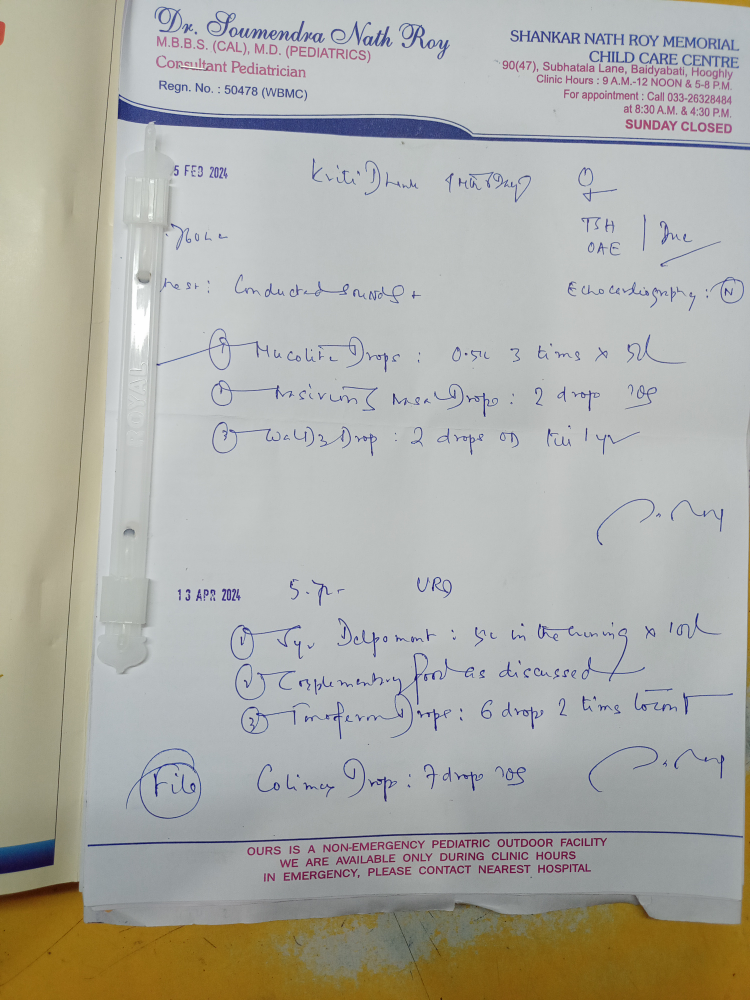 Dr. Soumendra Nath Roy
M.B.B.S. (CAL), M.D. (PEDIATRICS)
Consultant Pediatrician
Regn. No. : 50478 (WBMC)
SHANKAR NATH ROY MEMORIAL
CHILD CARE CENTRE
90(47), Subhatala Lane, Baidyabati, Hooghly
Clinic Hours : 9 A.M.-12 NOON & 5-8 P.M.
For appointment : Call 033-26328484
at 8:30 A.M. & 4:30 P.M.
SUNDAY CLOSED
5 FEB 2024
Kriti
TSH
OAE
Due
Conducted sounds +
Echocardiography : N
1 Mucolite Drops : 3 times x 5d
2 Nasal Drops : 2 drop SOS
3 Drop : 2 drops OD till 1 yr
S. Roy
13 APR 2024
1 Syr : in the evening x 10d
2 Complementary food as discussed
3 Drops : 6 drops 2 times
File
Colimex Drop : 7 drop SOS
S. Roy
ROYAL
OURS IS A NON-EMERGENCY PEDIATRIC OUTDOOR FACILITY
WE ARE AVAILABLE ONLY DURING CLINIC HOURS
IN EMERGENCY, PLEASE CONTACT NEAREST HOSPITAL